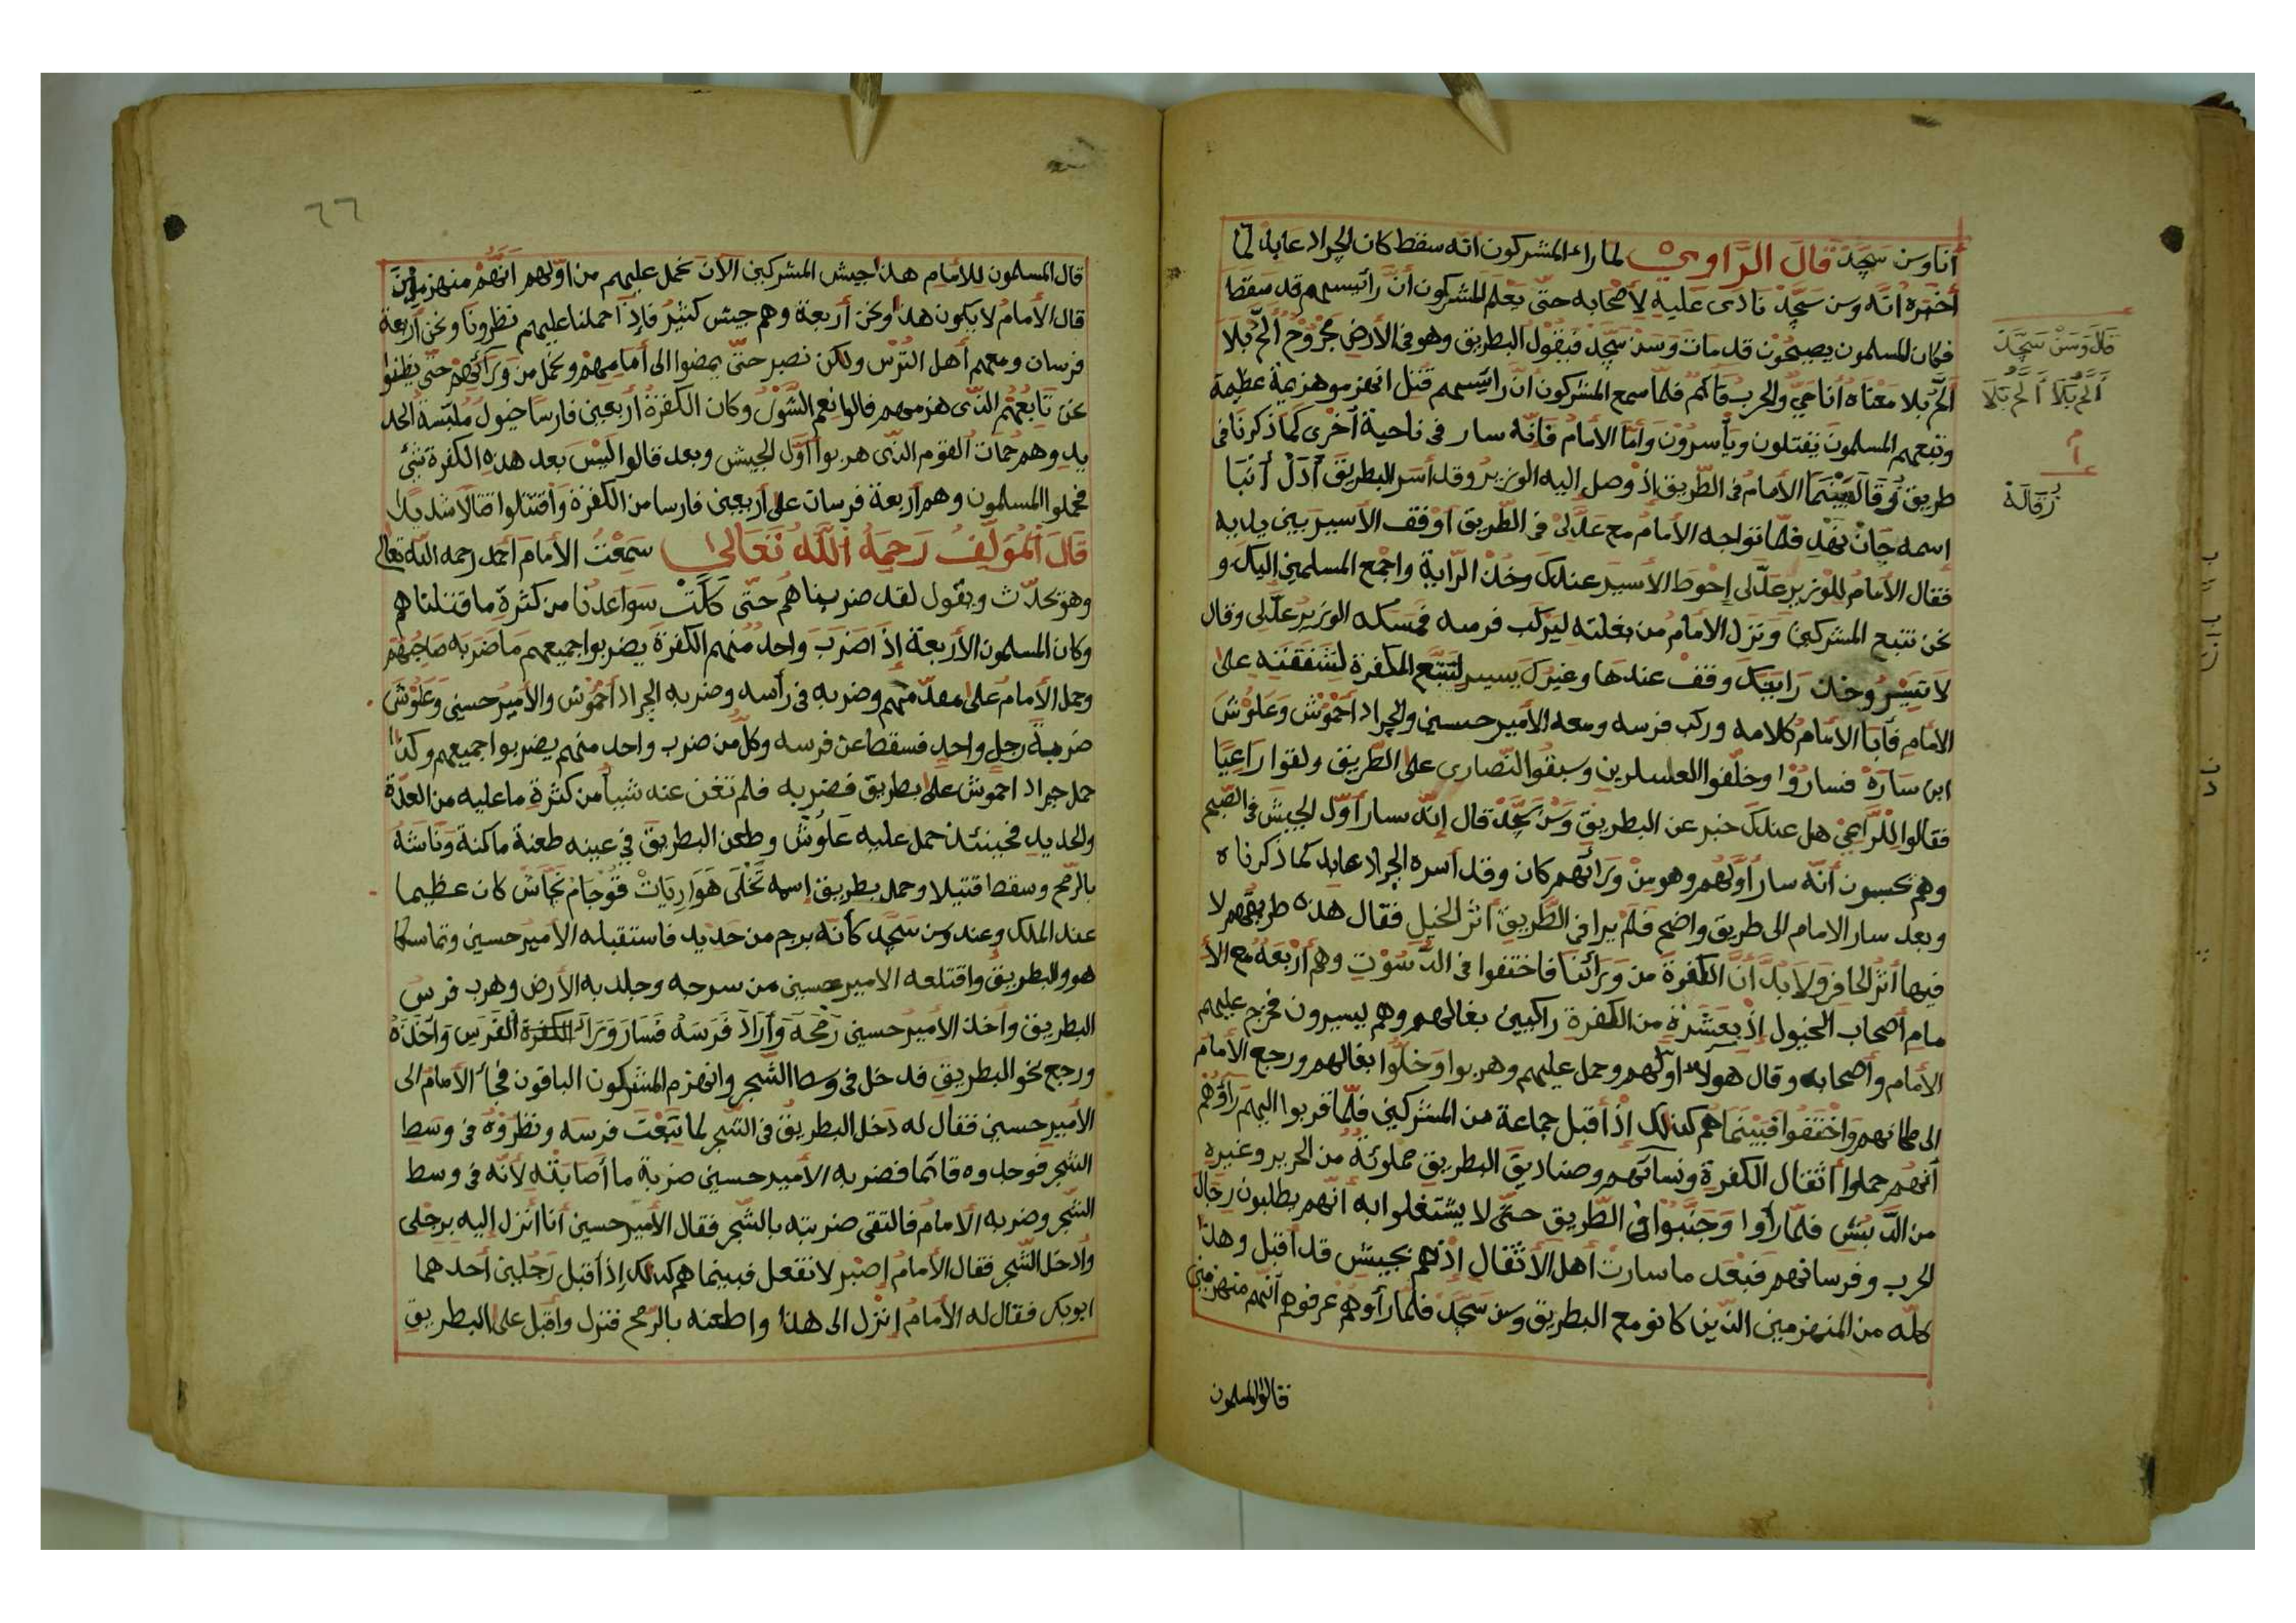 أنا وسن سجد قال الراوي لما راء المشركون انه سقط كان الجراد عابد لما
أخبره انه وسن سجد نادى عليه لأصحابه حتى يعلم المشركون أن رائيسهم قد سقط
فكان المسلمون يصيحون قد مات وسن سجد فيقول البطريق وهو في الأرض مجروح الح بلا
الح بلا معناه أنا حي والحرب قائم فلما سمع المشركون أن رائيسهم قتل انهزموا هزيمة عظيمة
وتبعهم المسلمون يقتلون ويأسرون وأما الأمام فإنه سار في ناحية أخرى كما ذكرنا في
طريق زقالة فبينما الأمام في الطريق إذ وصل إليه الوزير وقد أسر البطريق أدل أنبا
إسمه جان نهد فلما تواجه الأمام مع عدلى في الطريق أوقف الأسير بين يديه
فقال الأمام للوزير عدلى إحوط الأسير عندك وخذ الراية واجمع المسلمين اليك و
نحن نتبع المشركين ونزل الأمام من بغلته ليركب فرسه فمسكه الوزير عدلى وقال
لا تسير وخذ رايتك وقف عندها وغيرك يسير لتتبع الكفرة لشفقته على
الأمام فأبا الأمام كلامه وركب فرسه ومعه الأمير حسين والجراد أحموش وعلوش
ابن سارة فساروا وخلفوا العسكرين وسبقوا النصارى على الطريق ولقوا راعيا
فقالوا للراعي هل عندك خبر عن البطريق وسن سجد قال إنه سار أول الجيش في الصبح
وهم يحسبون أنه سار أولهم وهو من ورائهم كان وقد أسره الجراد عابد كما ذكرناه
وبعد سار الامام الى طريق واضح فلم يرا في الطريق أثر الخيل فقال هذه طريقهم لا
فيها أثر الحافر ولا بد أن الكفرة من ورائنا فاختفوا في الدسوت وهم أربعة مع الأ
مام أصحاب الخيول إذ بعشرة من الكفرة راكبين بغالهم وهم يسيرون فخرج عليهم
الأمام وأصحابه وقال هولاء اولهم وحمل عليهم وهربوا وخلوا بغالهم ورجع الأمام
الى مكانهم واختفوا فبينما هم كذلك إذ أقبل جماعة من المشركين فلما قربوا اليهم رأوهم
أنهم حملوا أثقال الكفرة ونسائهم وصناديق البطريق مملوئة من الحرير وغيره
من الدبش فلما رأوا وجنبوا في الطريق حتى لا يشتغلوا به أنهم يطلبون رجال
الحرب وفرسانهم فبعد ما سارت أهل الأثقال إذ هم بجيش قد أقبل وهذا
كله من المنهزمين الذين كانو مع البطريق وسن سجد فلما رأوهم عرفوهم أنهم منهزمين
قالوا المسلمون
قال وسن سجد
ألح بلا ألح بلا
زقالة
٦٦
قال المسلمون للأمام هذا جيش المشركين الآن نحمل عليهم من اولهم انهم منهزمون
قال الأمام لا يكون هذا ونحن أربعة وهم جيش كثير فإذا حملنا عليهم نظرونا ونحن أربعة
فرسان ومعهم أهل الترس ولكن نصبر حتى يمضوا الى أمامهم ونحمل من ورائهم حتى يظنوا
نحن تابعهم الذي هزمهم قالوا نعم الشول وكان الكفرة أربعين فارسا خيول ملبسة الحد
يد وهم حمات القوم الذي هربوا أول الجيش وبعد قالوا ليس بعد هذه الكفرة شئ
فحملوا المسلمون وهم أربعة فرسان على أربعين فارسا من الكفرة وأقتتلوا قتالا شديدا
قال المؤلف رحمه الله تعالى سمعت الأمام أحمد رحمه الله تعالى
وهو يحدث ويقول لقد ضربناهم حتى كلت سواعدنا من كثرة ما قتلناهم
وكان المسلمون الأربعة إذا ضرب واحد منهم الكفرة يضربوا جميعهم ما ضربه صاحبهم
وحمل الأمام على مقدمهم وضربه في رأسه وضربه الجراد أحموش والأمير حسين وعلوش
ضربة رجل واحد فسقط عن فرسه وكل من ضرب واحد منهم يضربوا جميعهم وكذا
حمل جراد احموش على بطريق فضربه فلم تغن عنه شيأ من كثرة ما عليه من العدة
والحديد فحينئذ حمل عليه علوش وطعن البطريق في عينه طعنة ماكنة وناشه
بالرمح وسقط قتيلا وحمل بطريق إسمه تخلى هواريات قوجام نجاش كان عظيما
عند الملك وعند وسن سجد كأنه برج من حديد فاستقبله الأمير حسين وتماسكا
هو والبطريق واقتلعه الامير حسين من سرجه وجلد به الأرض وهرب فرس
البطريق وأخذ الأمير حسين رمحه وأراد فرسه فسار وراء الكفرة الفرس وأخذه
ورجع نحو البطريق قد دخل في وسط الشجر وانهزم المشركون الباقون فجاء الأمام الى
الأمير حسين فقال له دخل البطريق في الشجر لما تبعت فرسه ونظروه في وسط
الشجر فوجدوه قائما فضربه الأمير حسين ضربة ما أصابته لأنه في وسط
الشجر وضربه الأمام فالتقى ضربته بالشجر فقال الأمير حسين أنا أنزل إليه برجلى
وأدخل الشجر فقال الأمام إصبر لا تفعل فبينما هم كذلك إذ أقبل رجلين أحدهما
ابوبكر فقال له الأمام إنزل الى هذا واطعنه بالرمح فنزل وأقبل على البطريق